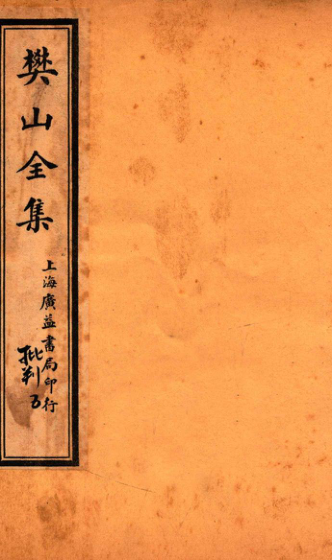 樊山全集
上海廣益書局印行
批判